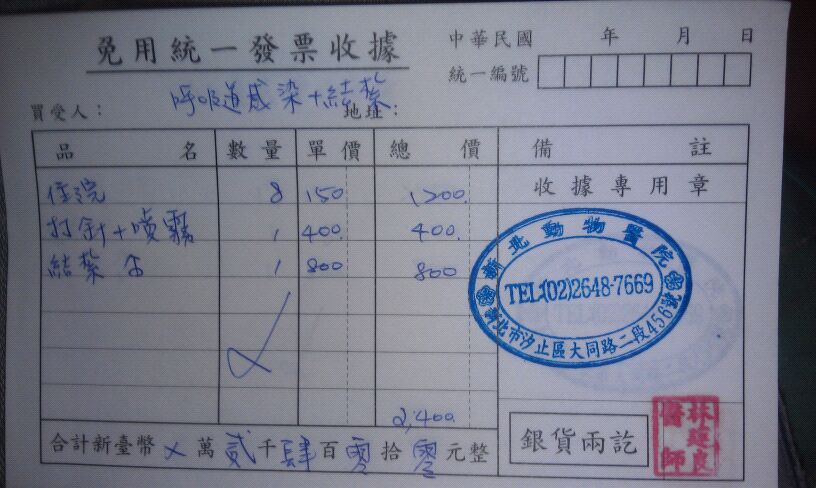 免用統一發票收據
中華民國 年 月 日
統一編號
買受人： 呼吸道感染+結紮 地址：
品名 數量 單價 總價 備註
住院 8 150 1200. 收據專用章
打針+噴霧 1 400. 400.
結紮 ♂ 1 800 800
新北動物醫院
TEL:(02)2648-7669
新北市汐止區大同路二段456號
2,400.
合計新臺幣 x 萬 貳 千 肆 百 零 拾 零 元整 銀貨兩訖
林建良醫師